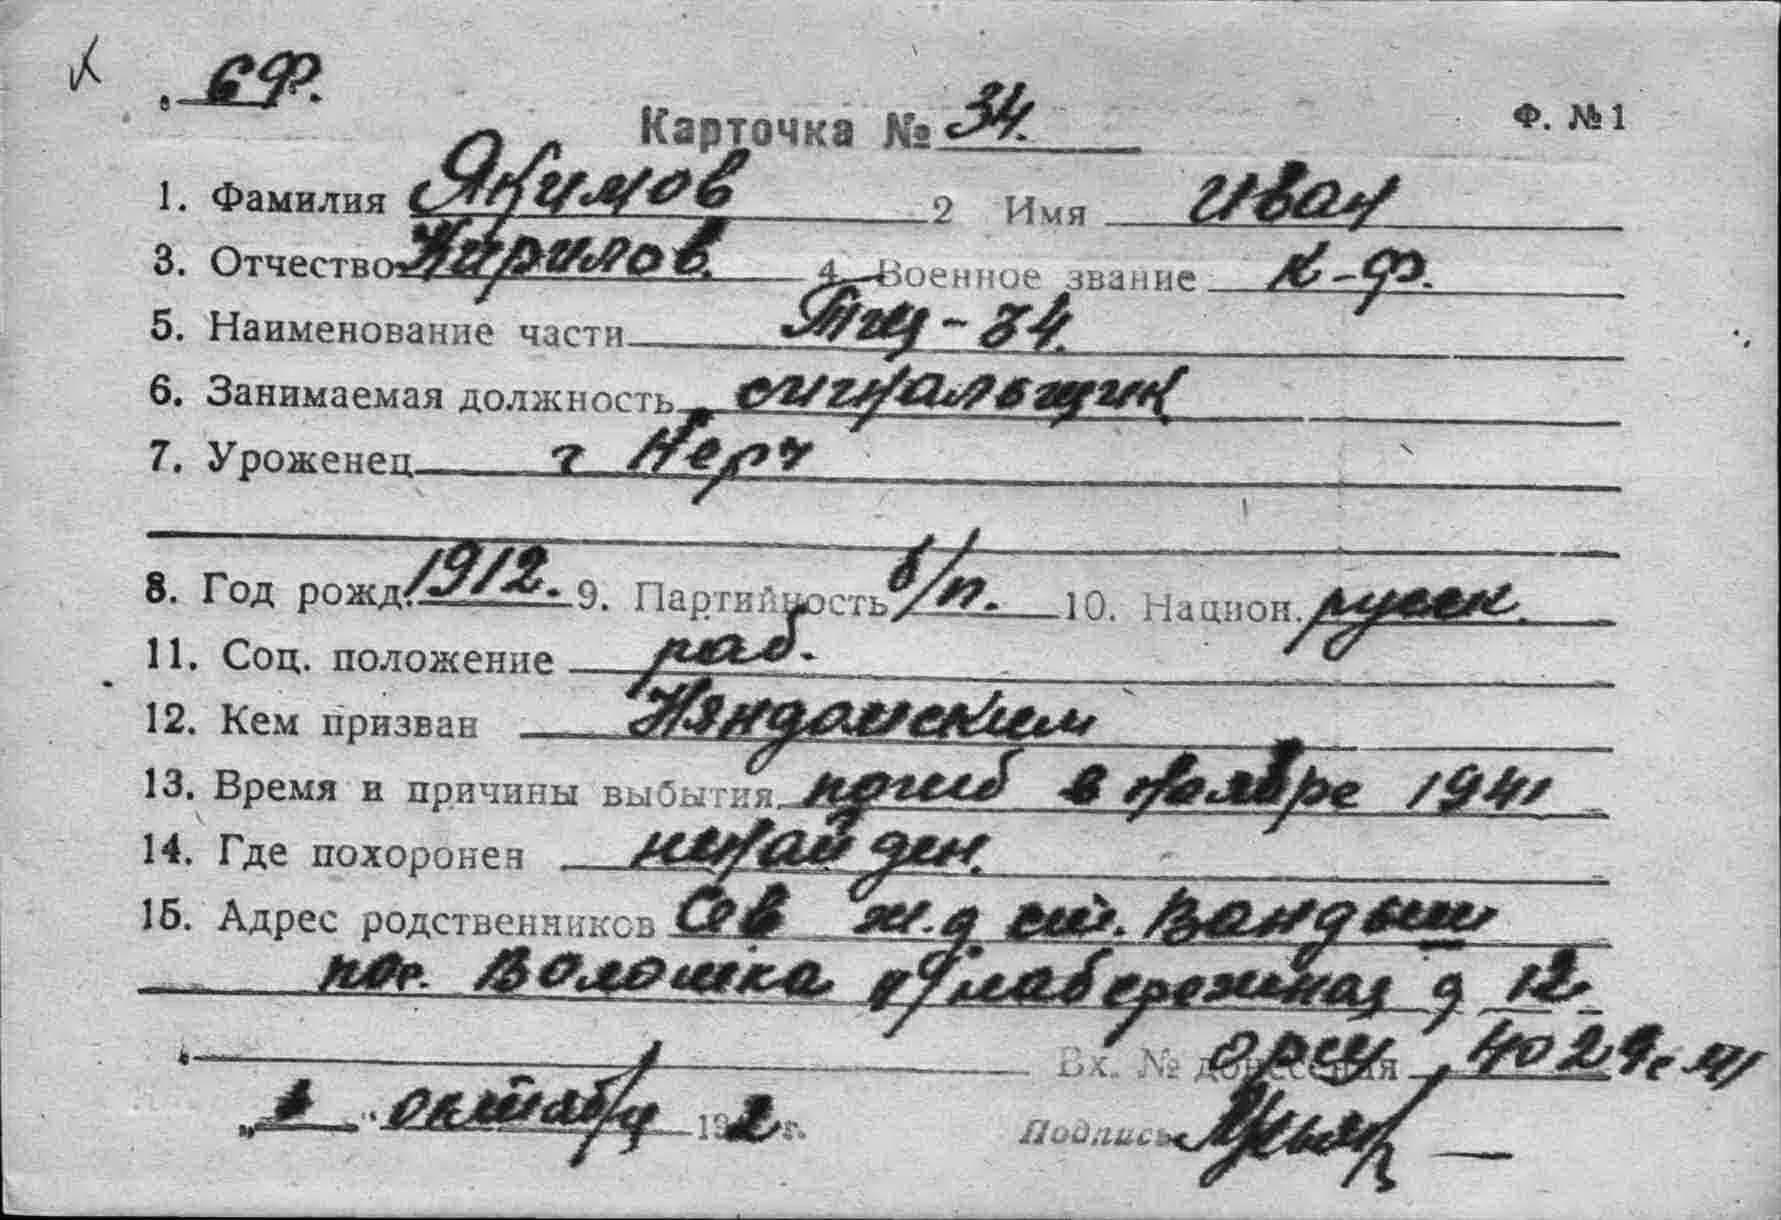 6Ф.
Карточка № 34.
Ф. № 1
1. Фамилия Якимов 2 Имя Иван
3. Отчество Кирилов. 4. Военное звание К-Ф.
5. Наименование части Тщ-34.
6. Занимаемая должность сигнальщик
7. Уроженец г Керч
8. Год рожд. 1912. 9. Партийность б/п. 10. Национ. русск.
11. Соц. положение раб.
12. Кем призван Няндомским
13. Время и причины выбытия погиб в ноябре 1941
14. Где похоронен ненайден.
15. Адрес родственников Сев ж.д ст. Вандыш
пос. Волошка набережная д 12
Вх. № донесения орсу 4029с
октября 19 2 г.
Подпись